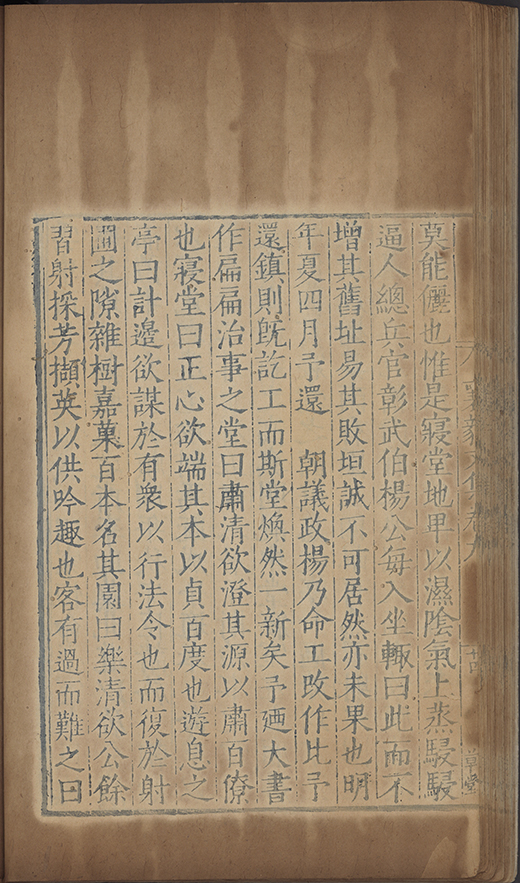 莫能儷也惟是寢堂地卑以濕陰氣上蒸駸駸
逼人總兵官彰武伯楊公每入坐輙曰此而不
增其舊址易其敗垣誠不可居然亦未果也明
年夏四月予還　朝議政楊乃命工改作比予
還鎮則旣訖工而斯堂煥然一新矣予廼大書
作扁扁治事之堂曰肅清欲澄其源以肅百僚
也寢堂曰正心欲端其本以貞百度也遊息之
亭曰計邊欲謀於有衆以行法令也而復於射
圃之隙雜樹嘉菓百本名其園曰樂清欲公餘
習射探芳擷英以供吟趣也客有過而難之曰